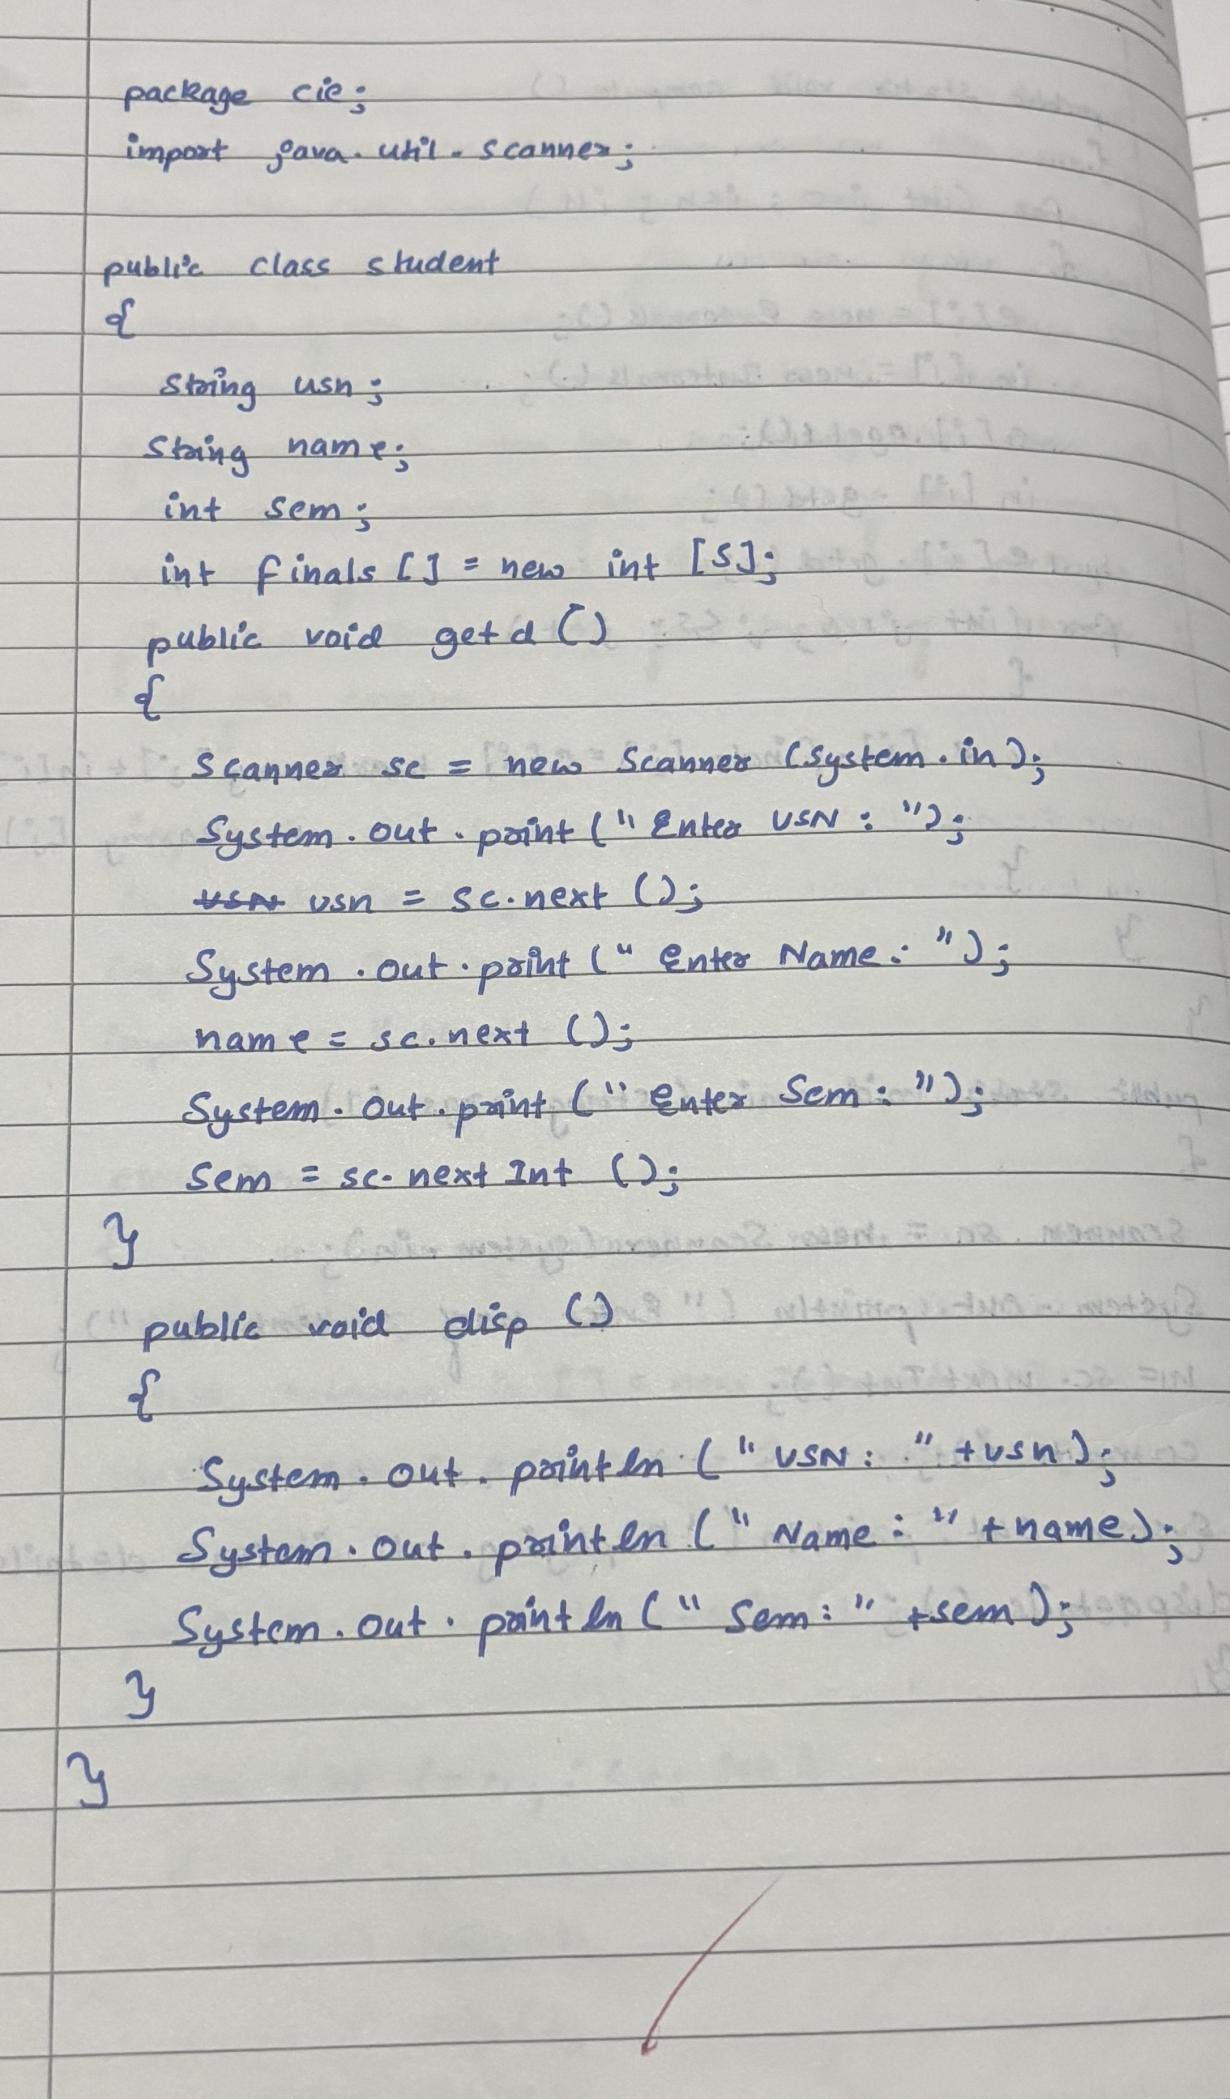 package cie;
import java.util.scanner;
public class student
{
String usn;
String name;
int sem;
int finals [] = new int [5];
public void getd ()
{
Scanner sc = new Scanner (system.in);
System.out.print (" Enter USN : ");
usn usn = sc.next ();
System.out.print (" Enter Name : ");
name = sc.next ();
System.out.print (" Enter Sem : ");
sem = sc.next Int ();
}
public void disp ()
{
System.out.println (" USN : " +usn);
System.out.println (" Name : " + name);
System.out.println (" Sem : " +sem);
}
}